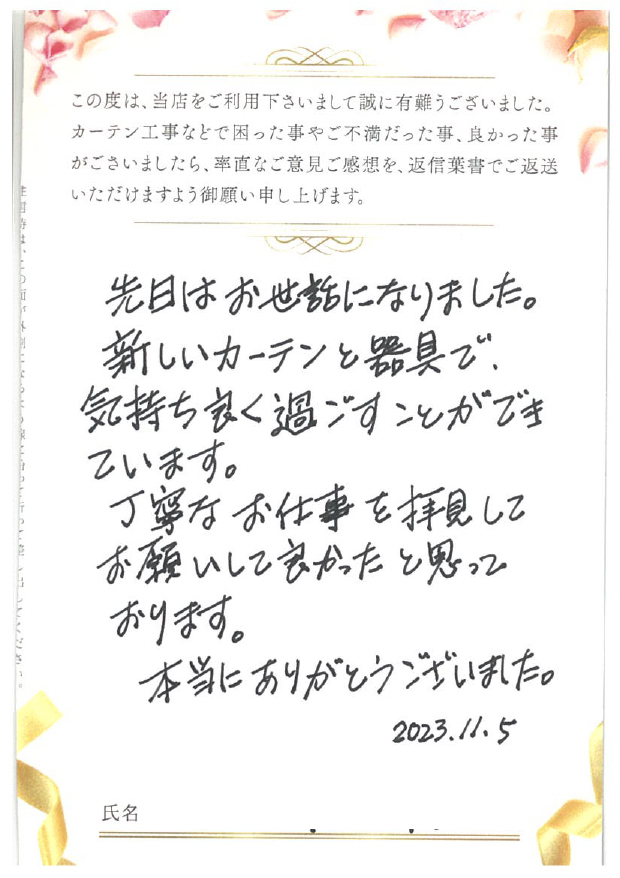 この度は、当店をご利用下さいまして誠に有難うございました。
カーテン工事などで困った事やご不満だった事、良かった事
がございましたら、率直なご意見ご感想を、返信葉書でご返送
いただけますよう御願い申し上げます。
先日はお世話になりました。
新しいカーテンと器具で、
気持ち良く過ごすことができ
ています。
丁寧なお仕事を拝見して
お願いして良かったと思って
おります。
本当にありがとうございました。
2023.11.5
氏名